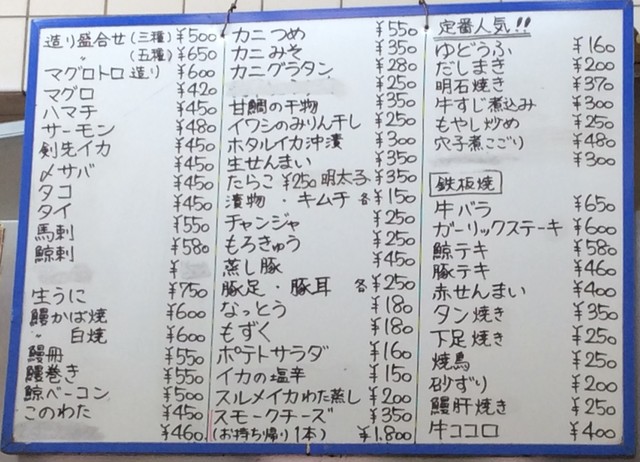 造り盛合せ(三種) ¥500
〃 (五種) ¥650
マグロトロ造り ¥600
マグロ ¥420
ハマチ ¥450
サーモン ¥480
剣先イカ ¥450
〆サバ ¥450
タコ ¥450
タイ ¥450
馬刺 ¥550
鯨刺 ¥580
¥
生うに ¥750
鰻かば焼 ¥600
〃 白焼 ¥600
鰻冊 ¥550
鰻巻き ¥550
鯨ベーコン ¥500
このわた ¥450
¥460
カニつめ ¥550
カニみそ ¥350
カニグラタン ¥280
¥250
甘鯛の干物 ¥350
イワシのみりん干し ¥250
ホタルイカ沖漬 ¥300
生せんまい ¥350
たらこ ¥250 明太子 ¥350
漬物・キムチ 各¥150
チャンジャ ¥250
もろきゅう ¥250
蒸し豚 ¥450
豚足・豚耳 各¥250
なっとう ¥180
もずく ¥180
ポテトサラダ ¥160
イカの塩辛 ¥150
スルメイカわた蒸し ¥200
スモークチーズ ¥350
(お持ち帰り1本) ¥1,800
定番人気!!
ゆどうふ ¥160
だしまき ¥200
明石焼き ¥370
牛すじ煮込み ¥300
もやし炒め ¥250
穴子煮こごり ¥480
¥300
鉄板焼
牛バラ ¥650
ガーリックステーキ ¥600
鯨テキ ¥580
豚テキ ¥460
赤せんまい ¥400
タン焼き ¥350
下足焼き ¥250
焼鳥 ¥250
砂ずり ¥200
鰻肝焼き ¥250
牛ココロ ¥400